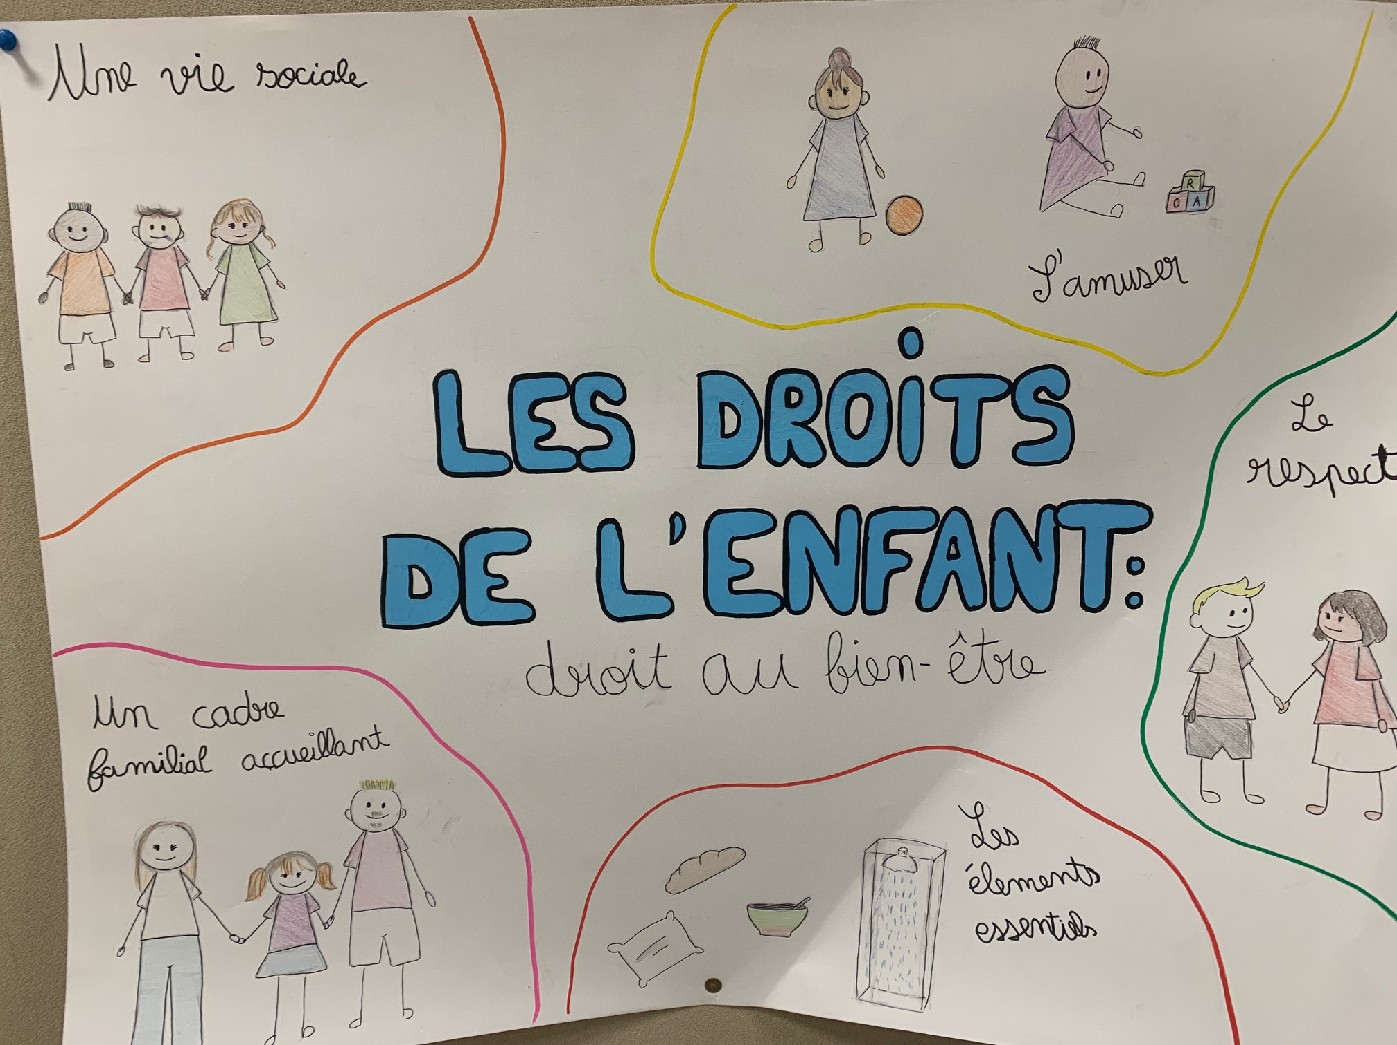 Une vie sociale
S'amuser
R
O A
LES DROiTS
DE L'ENFANT:
droit au bien-être
Le
respect
Un cadre
familial accueillant
Les
élements
essentiels